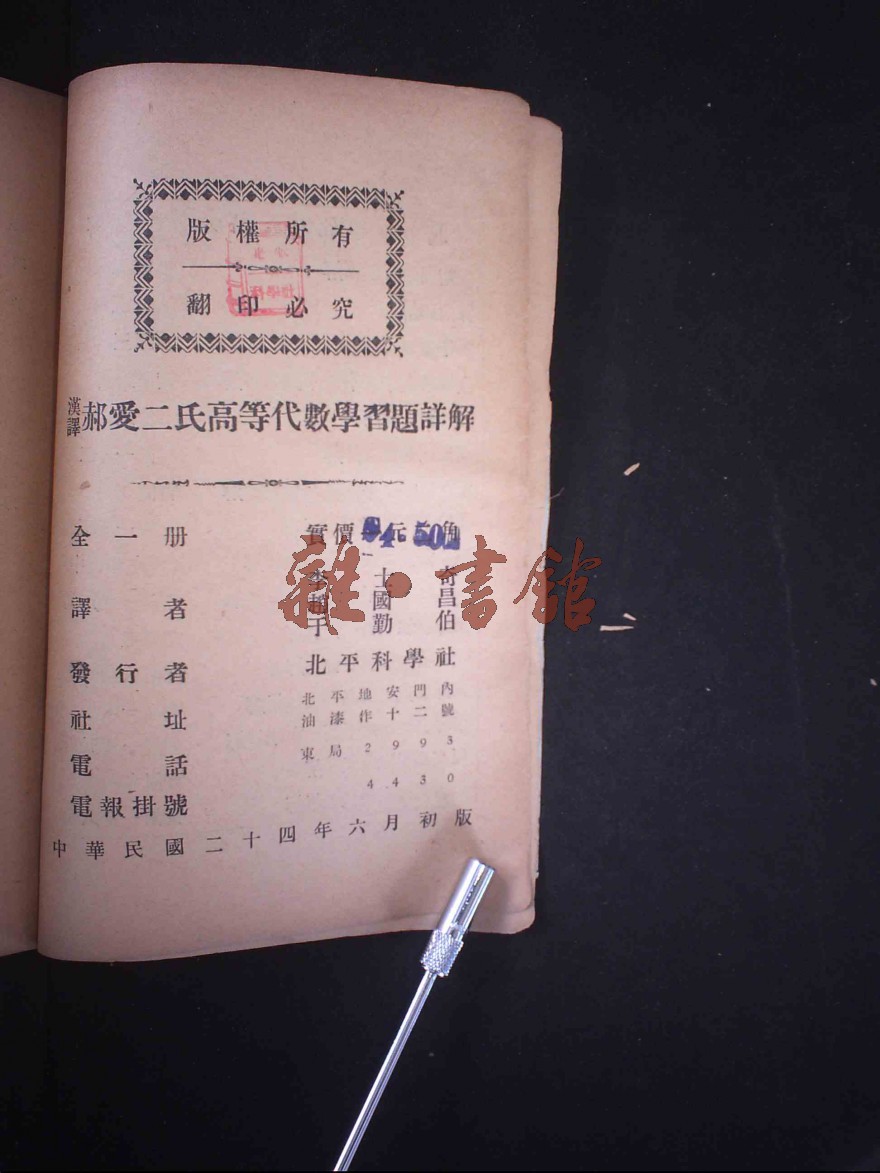 版權所有
翻印必究
漢譯郝愛二氏高等代數學習題詳解
全一册 實價 元 角
4.50
譯者 李士奇
國昌
于勤伯
發行者 北平科學社
社址 北平地安門內
油漆作十二號
電話 東局2993
電報掛號 4430
中華民國二十四年六月初版
雜·書館